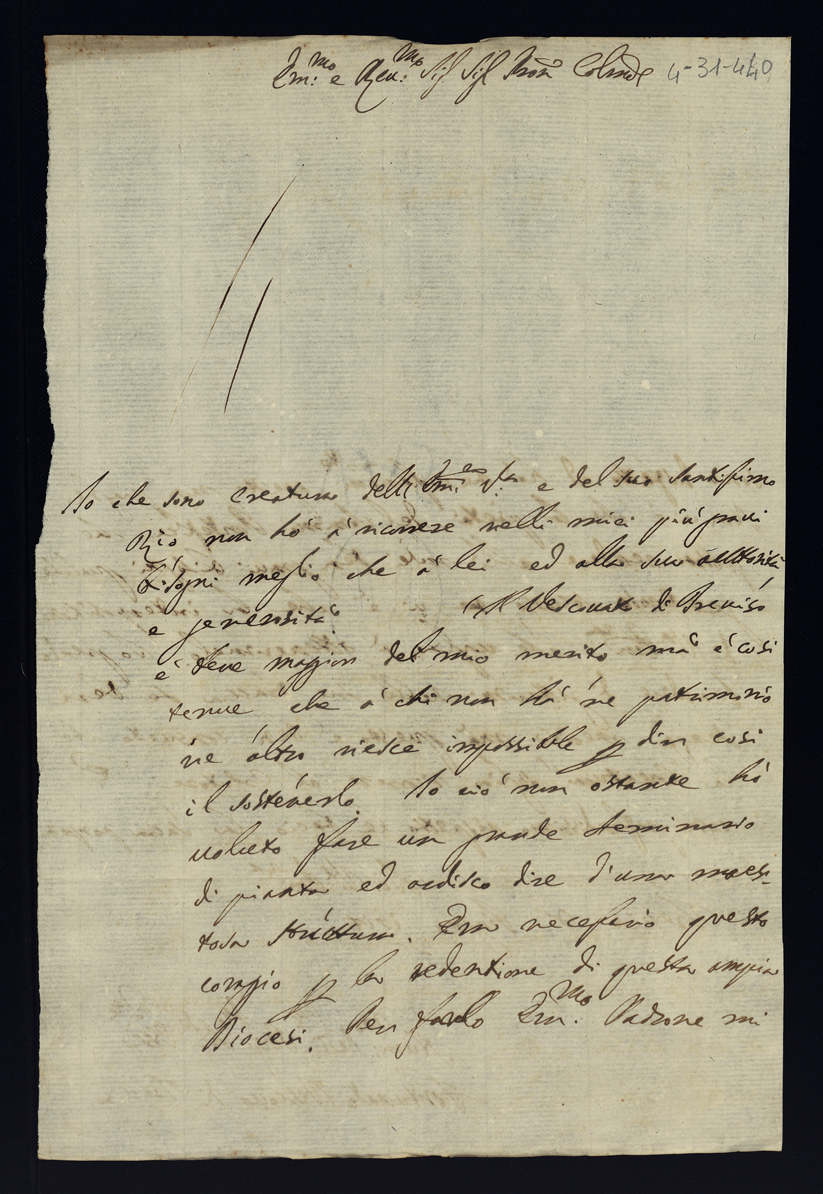 Em:mo e Rev:mo Sig Sig Pron Colmo 4-31-440
Io che sono creatura dell' Em: Va e del suo Santissimo
Zio non hò à ricorrere nelli miei più gravi
bisogni meglio che à lei ed alla sua auttorità
e generosità. Il Vescovato di Treviso
e' bene maggior del mio merito mà è così
tenue che à chi non hà ne patrimonio
ne altro riesce impossibile p dir così
il sostenerlo. Io ciò non ostante hò
voluto fare un grande seminario
di pianta ed ardisco dire d'una maes-
tosa struttura. Era necessario questo
coraggio p la redentione di questa ampia
Diocesi. Per farlo Em:mo Padrone mi